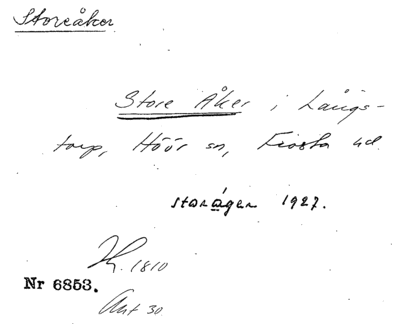 Storeåker
Store Åker i Långs-
torp, Höör sn, Frosta hd.
storågen 1927.
H. 1810
Nr 6853.
Ant 30